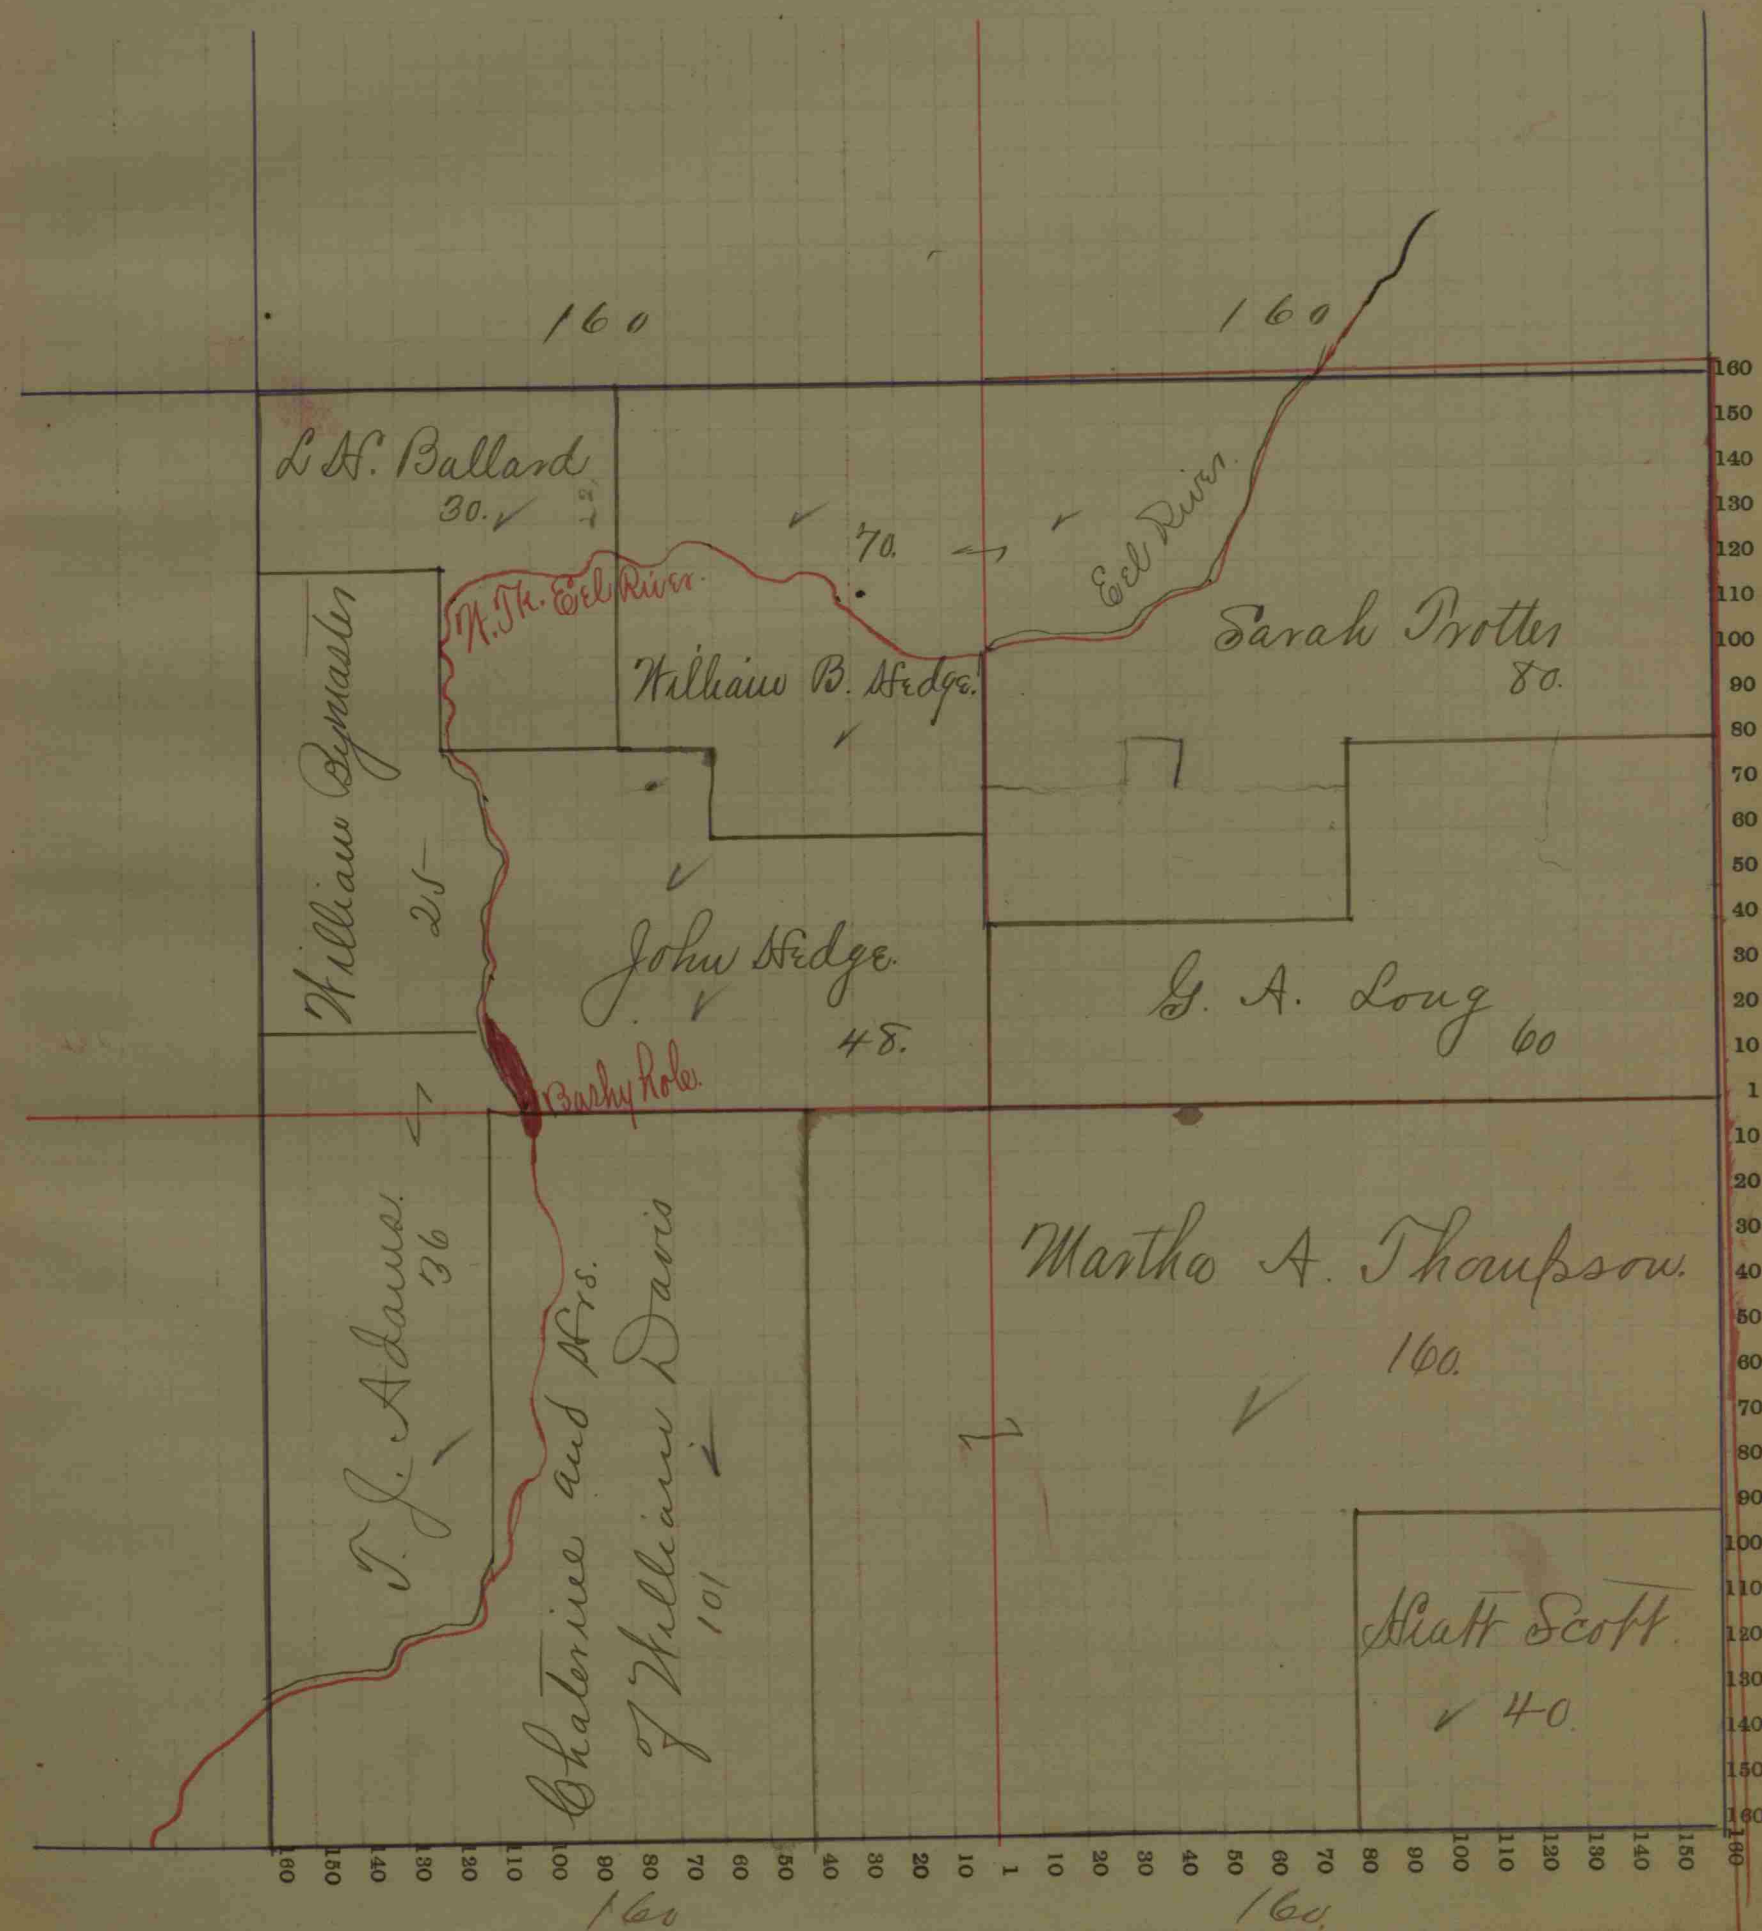 160
160
L H. Ballard
30.
70.
Eel River.
W. Fk. Eel River.
Sarah Trotter
80.
William B. Hedge.
William Bymaster
25
John Hedge.
48.
G. A. Long
60
Bashy hole.
T. J. Adams.
36
Chaterine and Hrs.
of William Davis
101
Martha A. Thompson.
160.
Hiatt Scott.
40.
160
150
140
130
120
110
100
90
80
70
60
50
40
30
20
10
1
10
20
30
40
50
60
70
80
90
100
110
120
130
140
150
160
160 150 140 130 120 110 100 90 80 70 60 50 40 30 20 10 1 10 20 30 40 50 60 70 80 90 100 110 120 130 140 150 160
160
160.